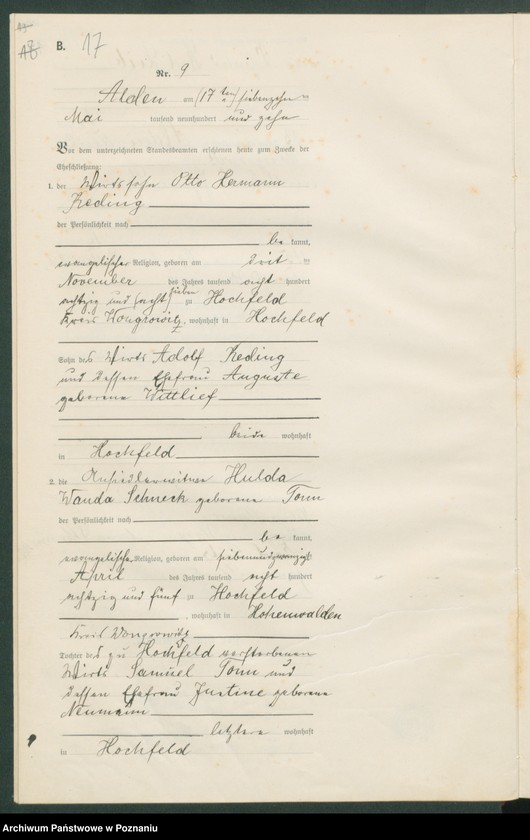 17
18
B. 17
Nr. 9
Alden am (17 ten) siebenzehn ten
Mai tausend neunhundert und zehn
Vor dem unterzeichneten Standesbeamten erschienen heute zum Zwecke der
Eheschließung:
1. der Wirtssohn Otto Hermann
Keding
der Persönlichkeit nach
be kannt,
evangelischer Religion, geboren am drit ten
November des Jahres tausend acht hundert
achtzig und (acht) sieben zu Hochfeld
Kreis Wongrowitz, wohnhaft in Hochfeld
Sohn des Wirts Adolf Keding
und dessen Ehefrau Auguste
geborene Wittlief
beide wohnhaft
in Hochfeld
2. die Ansiedlerwitwe Hulda
Wanda Schneck geborene Tonn
der Persönlichkeit nach
be kannt,
evangelischer Religion, geboren am siebenundzwanzigst
April des Jahres tausend acht hundert
achtzig und fünf zu Hochfeld
, wohnhaft in Hohenwalden
Kreis Wongrowitz
Tochter des zu Hochfeld verstorbenen
Wirts Samuel Tonn und
dessen Ehefrau Justine geborene
Neumann
letztere wohnhaft
in Hochfeld
Archiwum Państwowe w Poznaniu